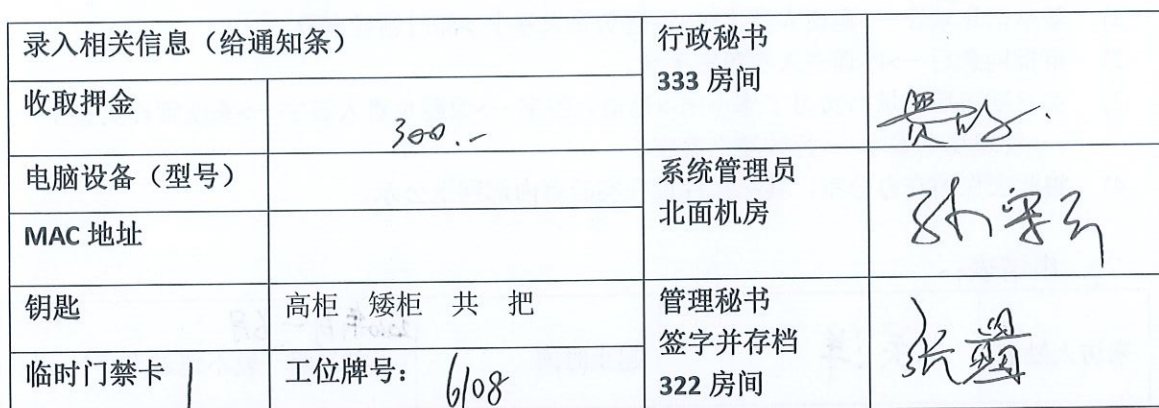 录入相关信息（给通知条）
行政秘书
333 房间
收取押金
300.-
电脑设备（型号）
系统管理员
北面机房
MAC 地址
钥匙
高柜 矮柜 共 把
管理秘书
签字并存档
322 房间
临时门禁卡
工位牌号：
6108